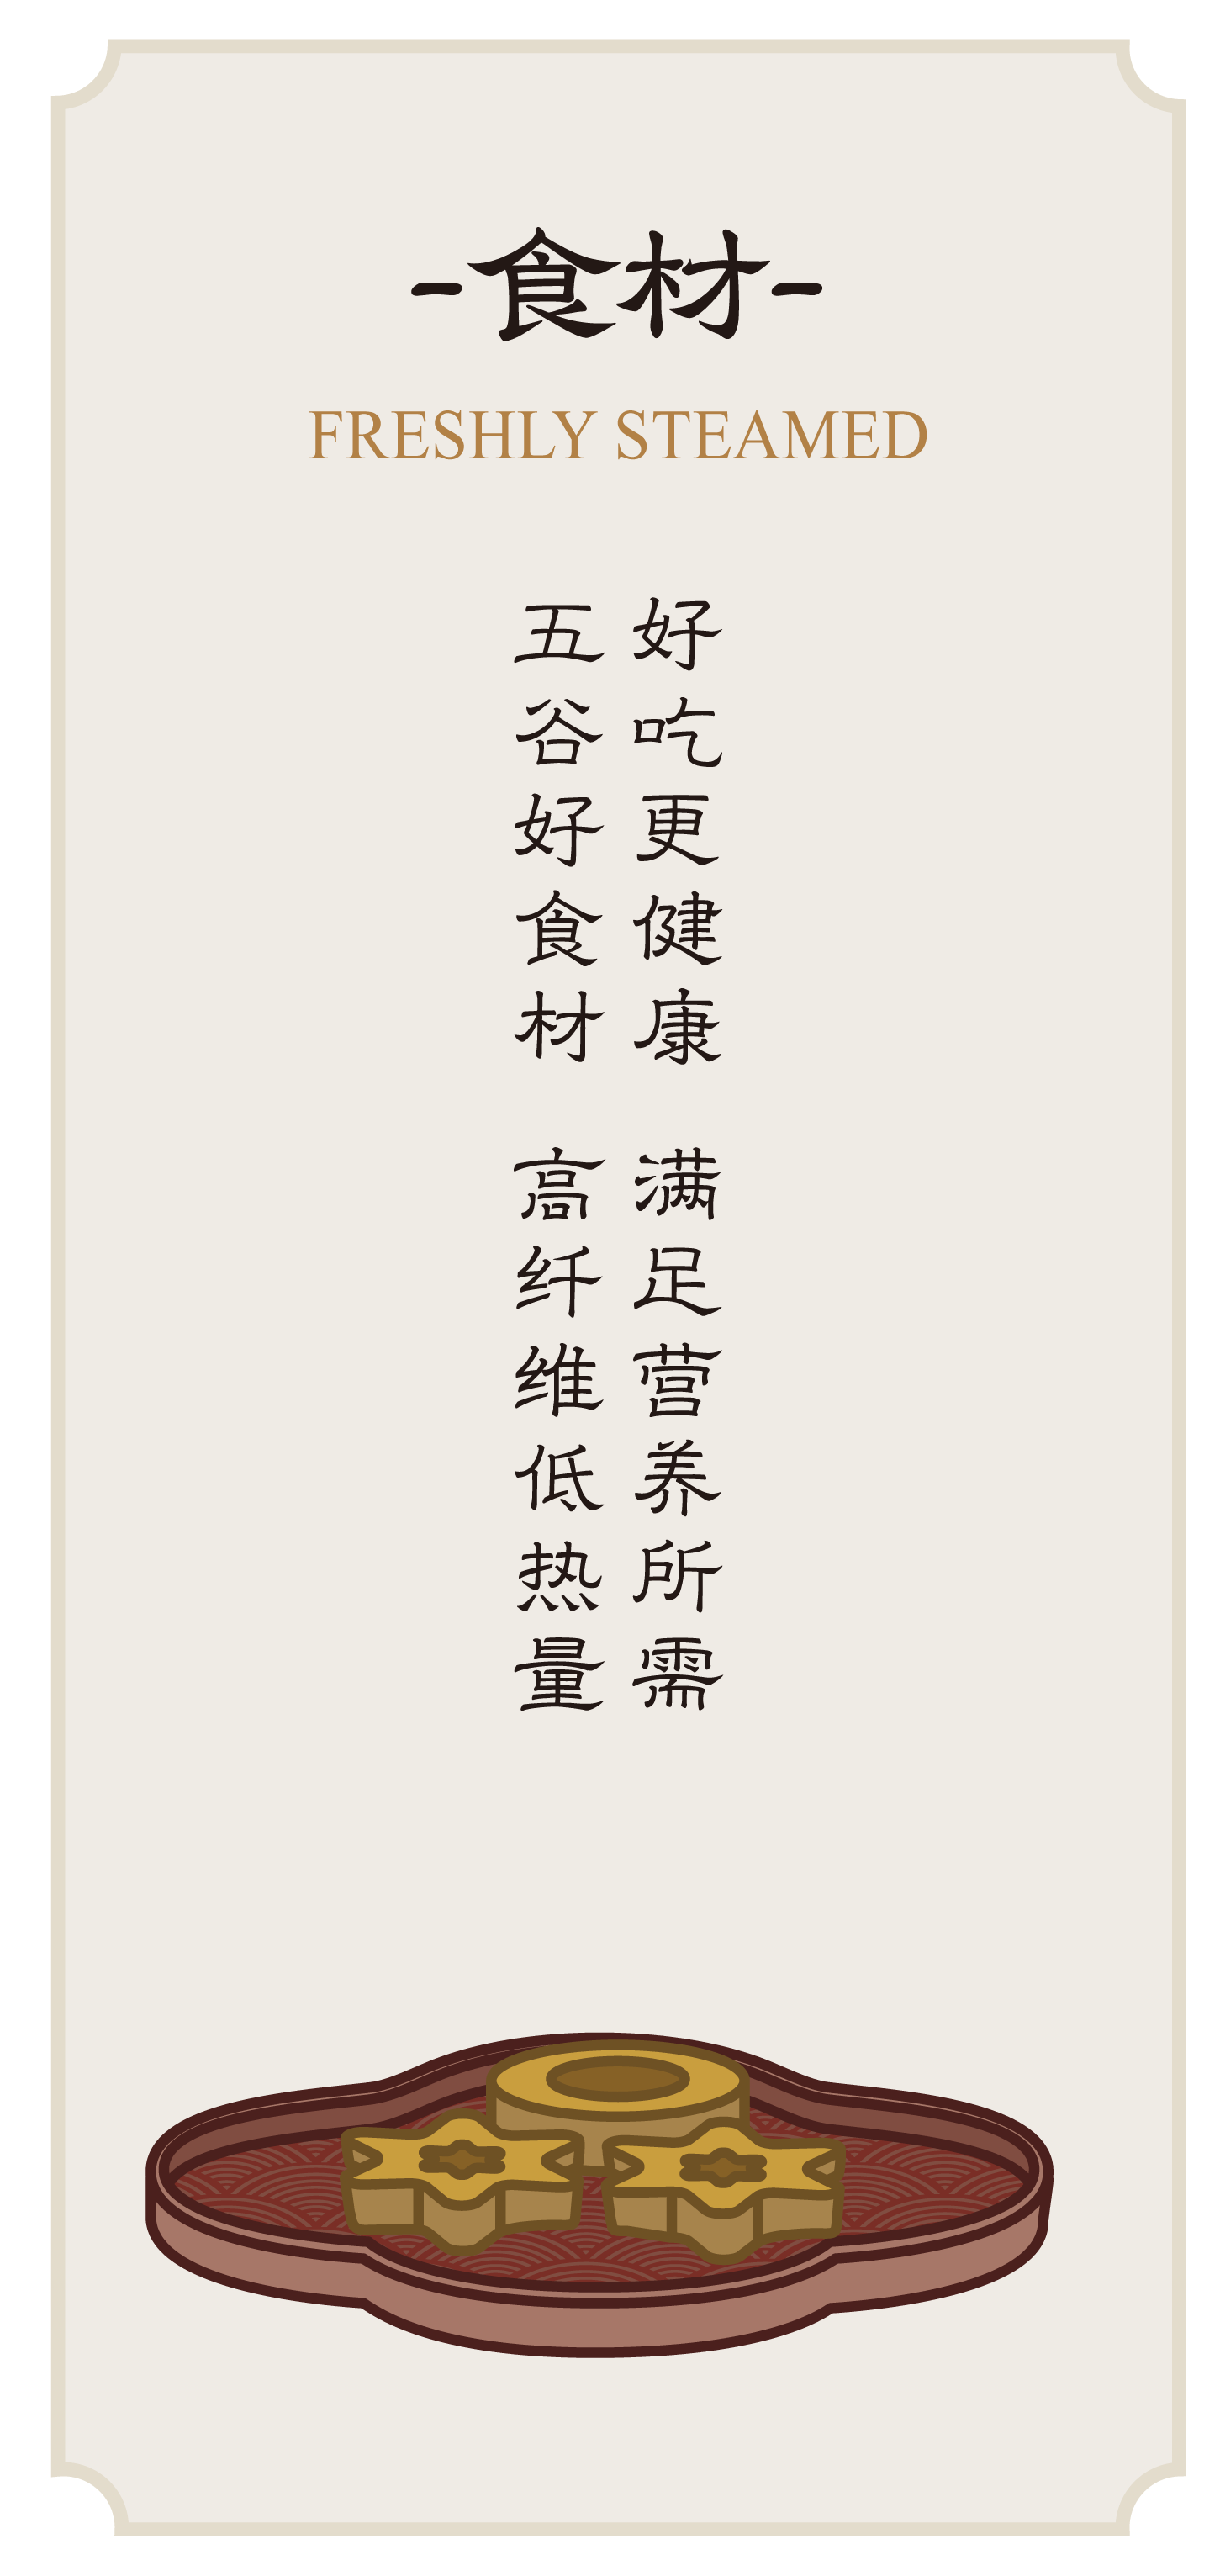 -食材-
FRESHLY STEAMED
好吃更健康 满足营养所需
五谷好食材 高纤维低热量